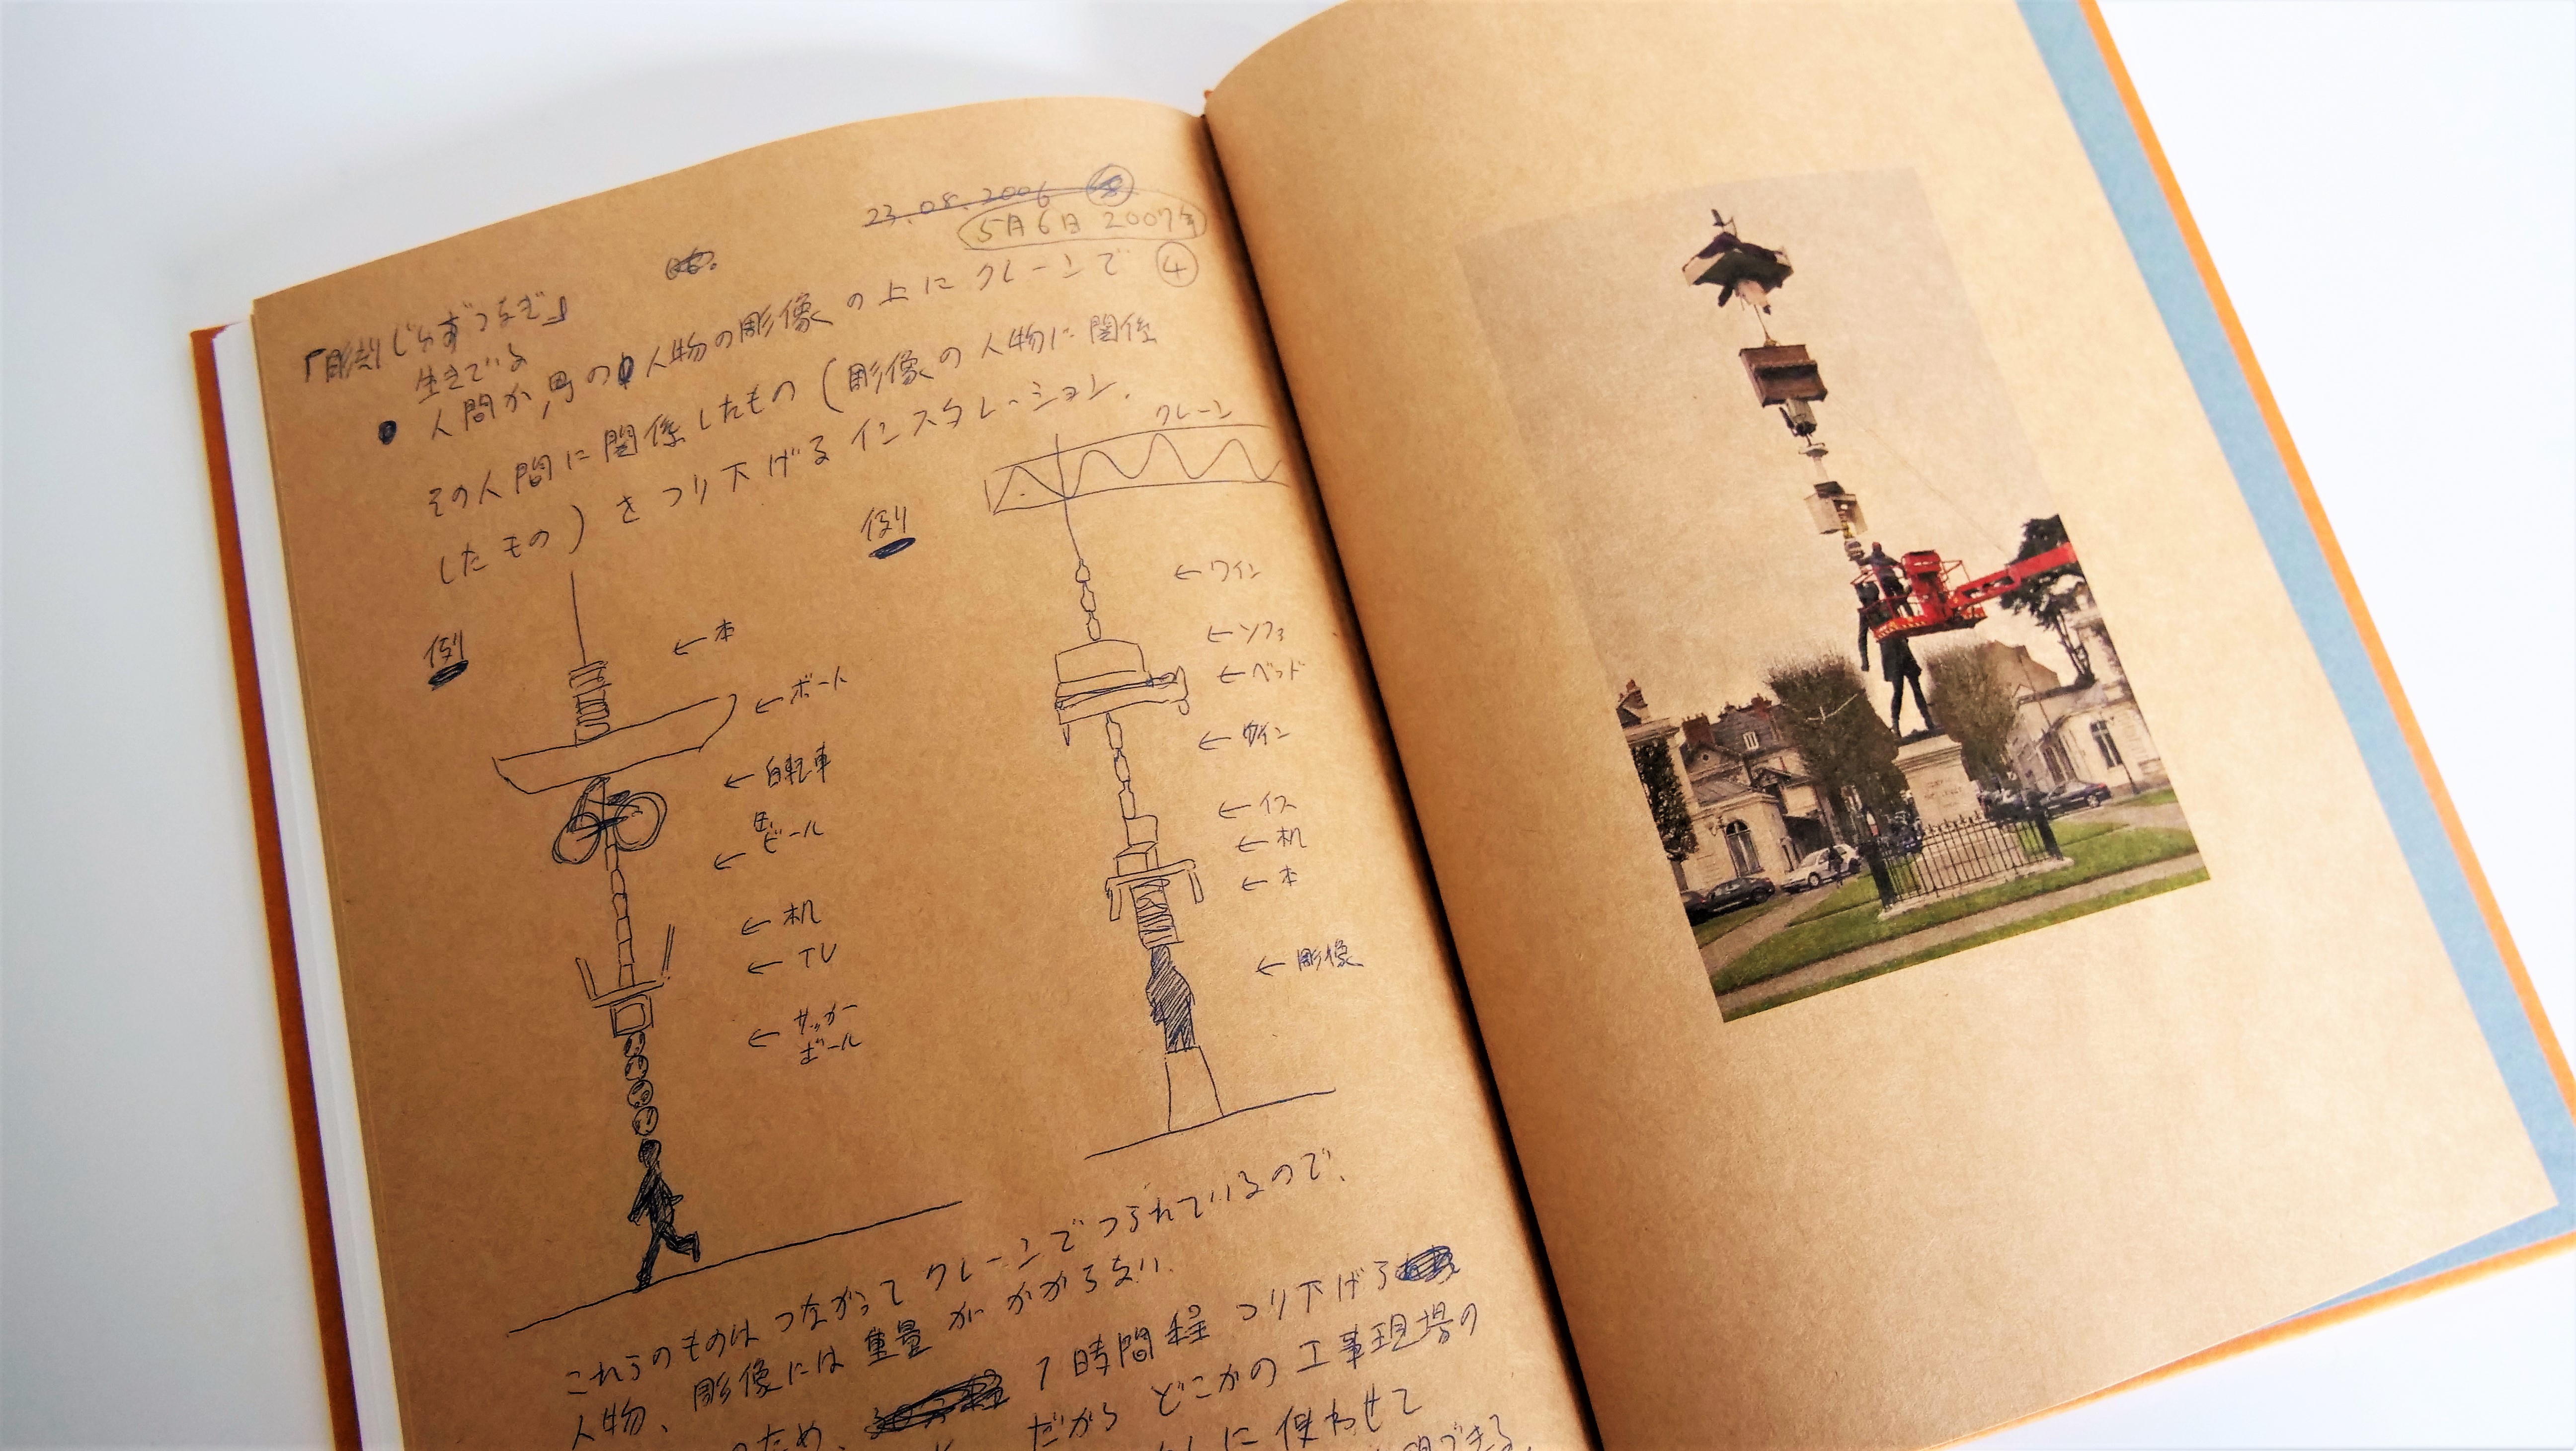 23.08.2006
5月6日 2007年
④
「彫刻じゅずつなぎ」
生きている
人間か、町の人物の彫像の上にクレーンで
その人間に関係したもの(彫像の人物に関係
したもの)をつり下げるインスタレーション.
例
← 本
← ボート
← 自転車
← ビール
← 机
← TV
← サッカー
ボール
例
クレーン
← ワイン
← ソファ
← ベッド
← ワイン
← イス
← 机
← 本
← 彫像
これらのものはつながってクレーンでつられているので、
人物、彫像には重量がかからない.
のため、 1時間程つり下げる
だから どこかの工事現場の
に使わせて
できる.